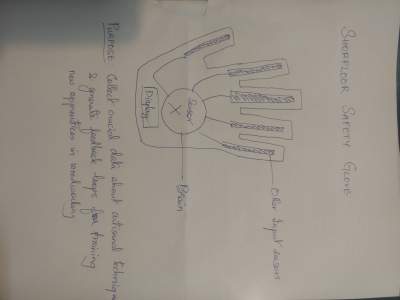 SHOPFLOOR SAFETY GLOVE
Other Input sensors
Sensor
X
Brain
Display
PURPOSE: Collect crucial data about artisanal techniques
& generate feedback loops for training
new apprentices in woodworking